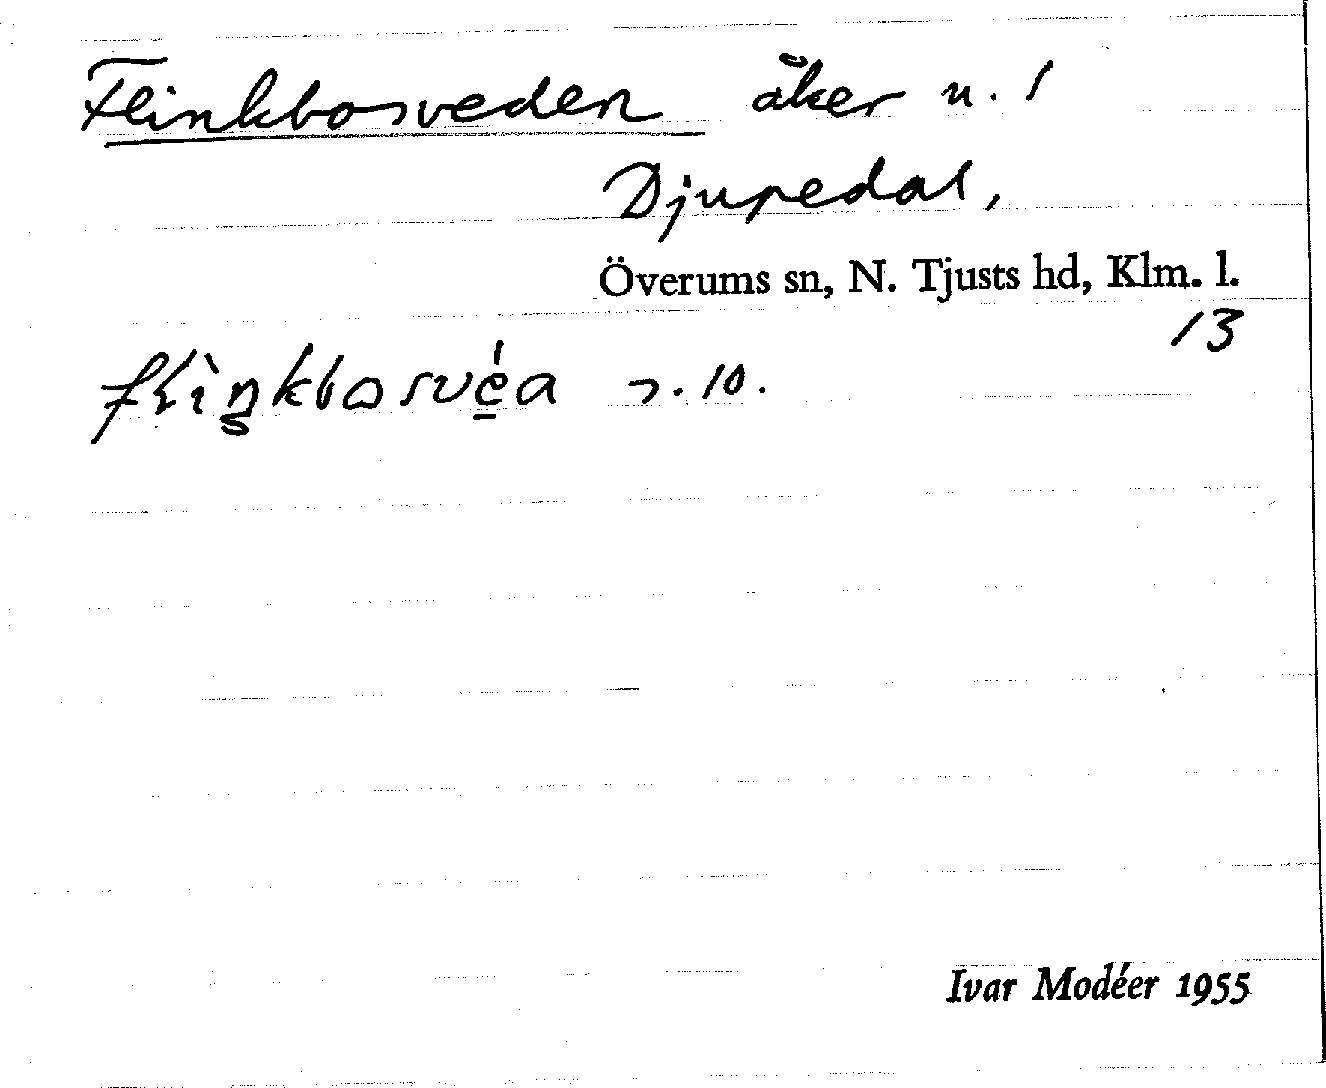 Flinkbosveden åker n. 1
Djupedal,
Överums sn, N. Tjusts hd, Klm. l.
13
10.
Ivar Modéer 1955